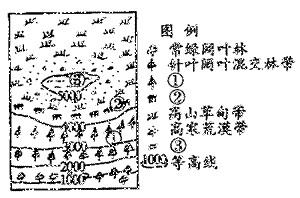 图例
常绿阔叶林
针叶阔叶混交林带
①
②
高山草甸带
高寒荒漠带
③
1000 等高线
③
5000
②
4000
①
3000
2000
1000